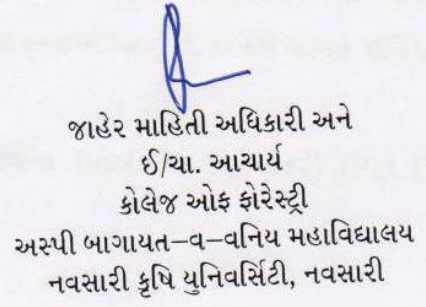 જાહેર માહિતી અધિકારી અને
ઈ/ચા. આચાર્ય
કોલેજ ઓફ ફોરેસ્ટ્રી
અસ્પી બાગાયત–વ–વનિય મહાવિદ્યાલય
નવસારી કૃષિ યુનિવર્સિટી, નવસારી